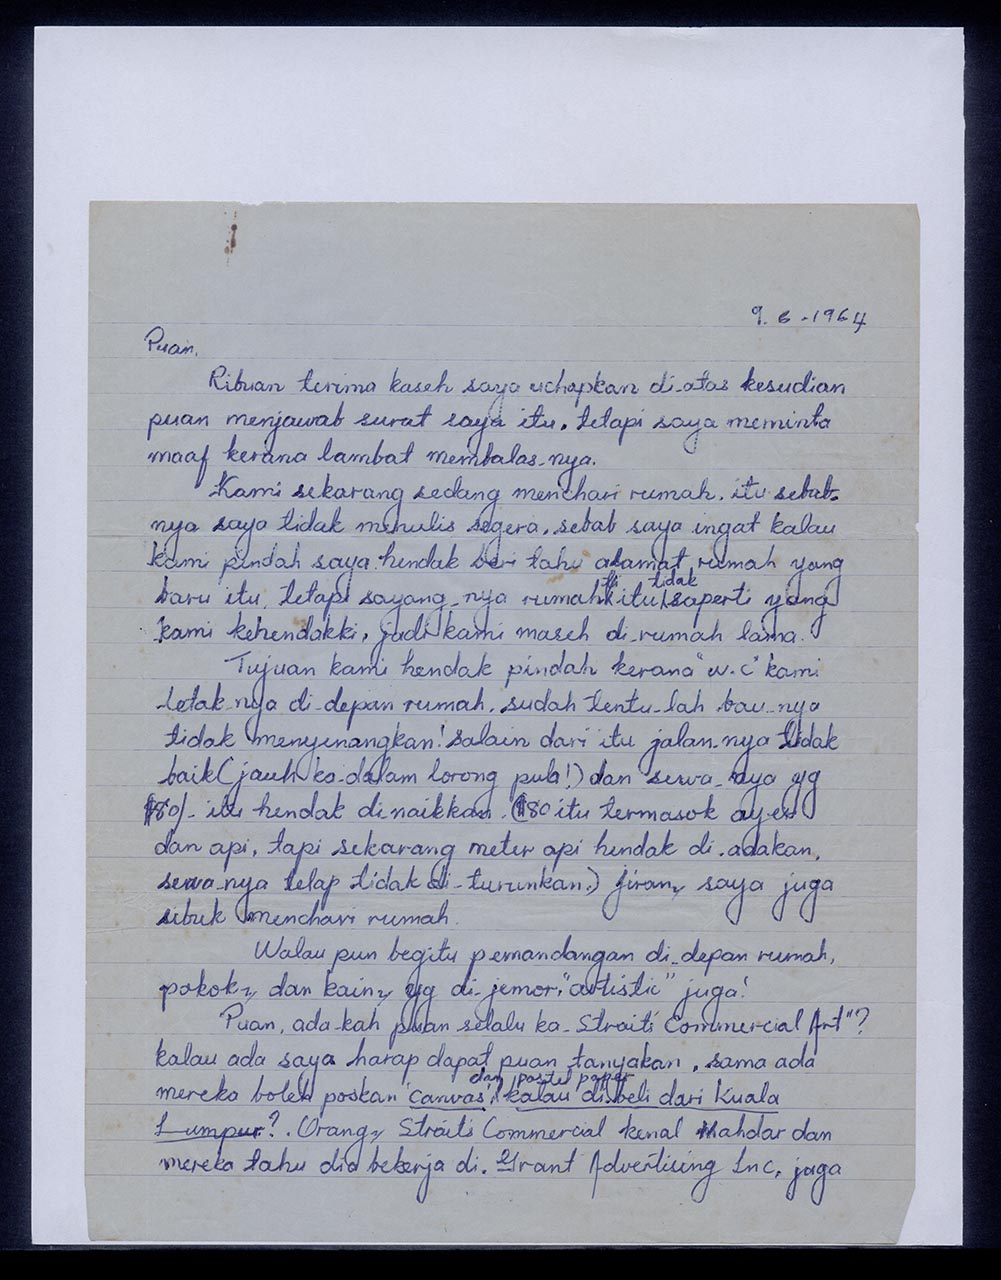 9. 6 - 1964
Puan,
Ribuan terima kaseh saya uchapkan di-atas kesudian
puan menjawab surat saya itu, tetapi saya meminta
maaf kerana lambat membalas-nya.
Kami sekarang sedang menchari rumah, itu sebab-
nya saya tidak menulis segera, sebab saya ingat kalau
kami pindah saya hendak beri tahu alamat rumah yang
baru itu, tetapi sayang-nya rumah² itu tidak saperti yang
kami kehendakki, jadi kami maseh di-rumah lama.
Tujuan kami hendak pindah kerana "w.c" kami
letak-nya di-depan rumah, sudah tentu-lah bau-nya
tidak menyenangkan! Salain dari itu jalan-nya tidak
baik (jauh ka-dalam lorong pula!) dan sewa-nya yg
$80/- itu hendak di naikkan. ($80 itu termasok ayer
dan api, tapi sekarang meter api hendak di-adakan,
sewa-nya tetap tidak di-turunkan.) Jiran² saya juga
sibuk menchari rumah.
Walau pun begitu pemandangan di-depan rumah,
pokok² dan kain² yg di-jemor, "artistic" juga!
Puan, ada-kah puan selalu ka-"Straits Commercial Art"?
kalau ada saya harap dapat puan tanyakan, sama ada
mereka boleh poskan 'canvas' dan pastel paper kalau di-beli dari Kuala
Lumpur?. Orang² Straits Commercial kenal Mahdar dan
mereka tahu dia bekerja di. Grant Advertising Inc, juga